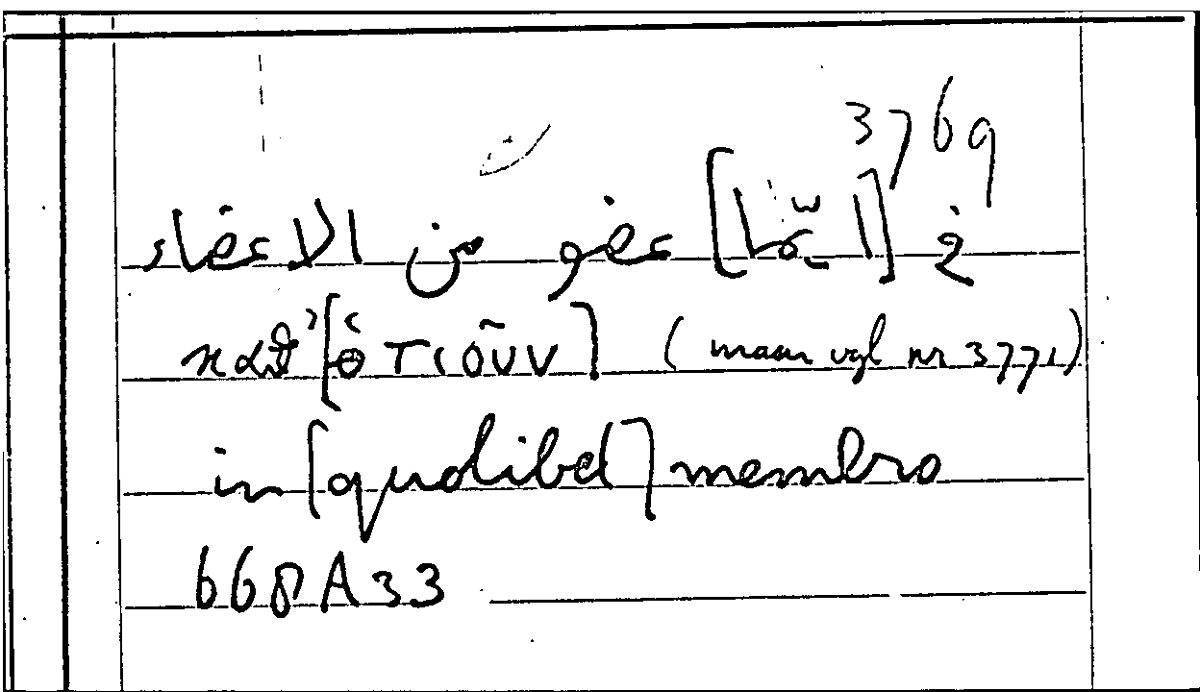 3769
في [ايّما] عضو من الاعضاء
καθ’ [ὁτιοῦν] (maar vgl nr 3771)
in [quolibet] membro
668A33